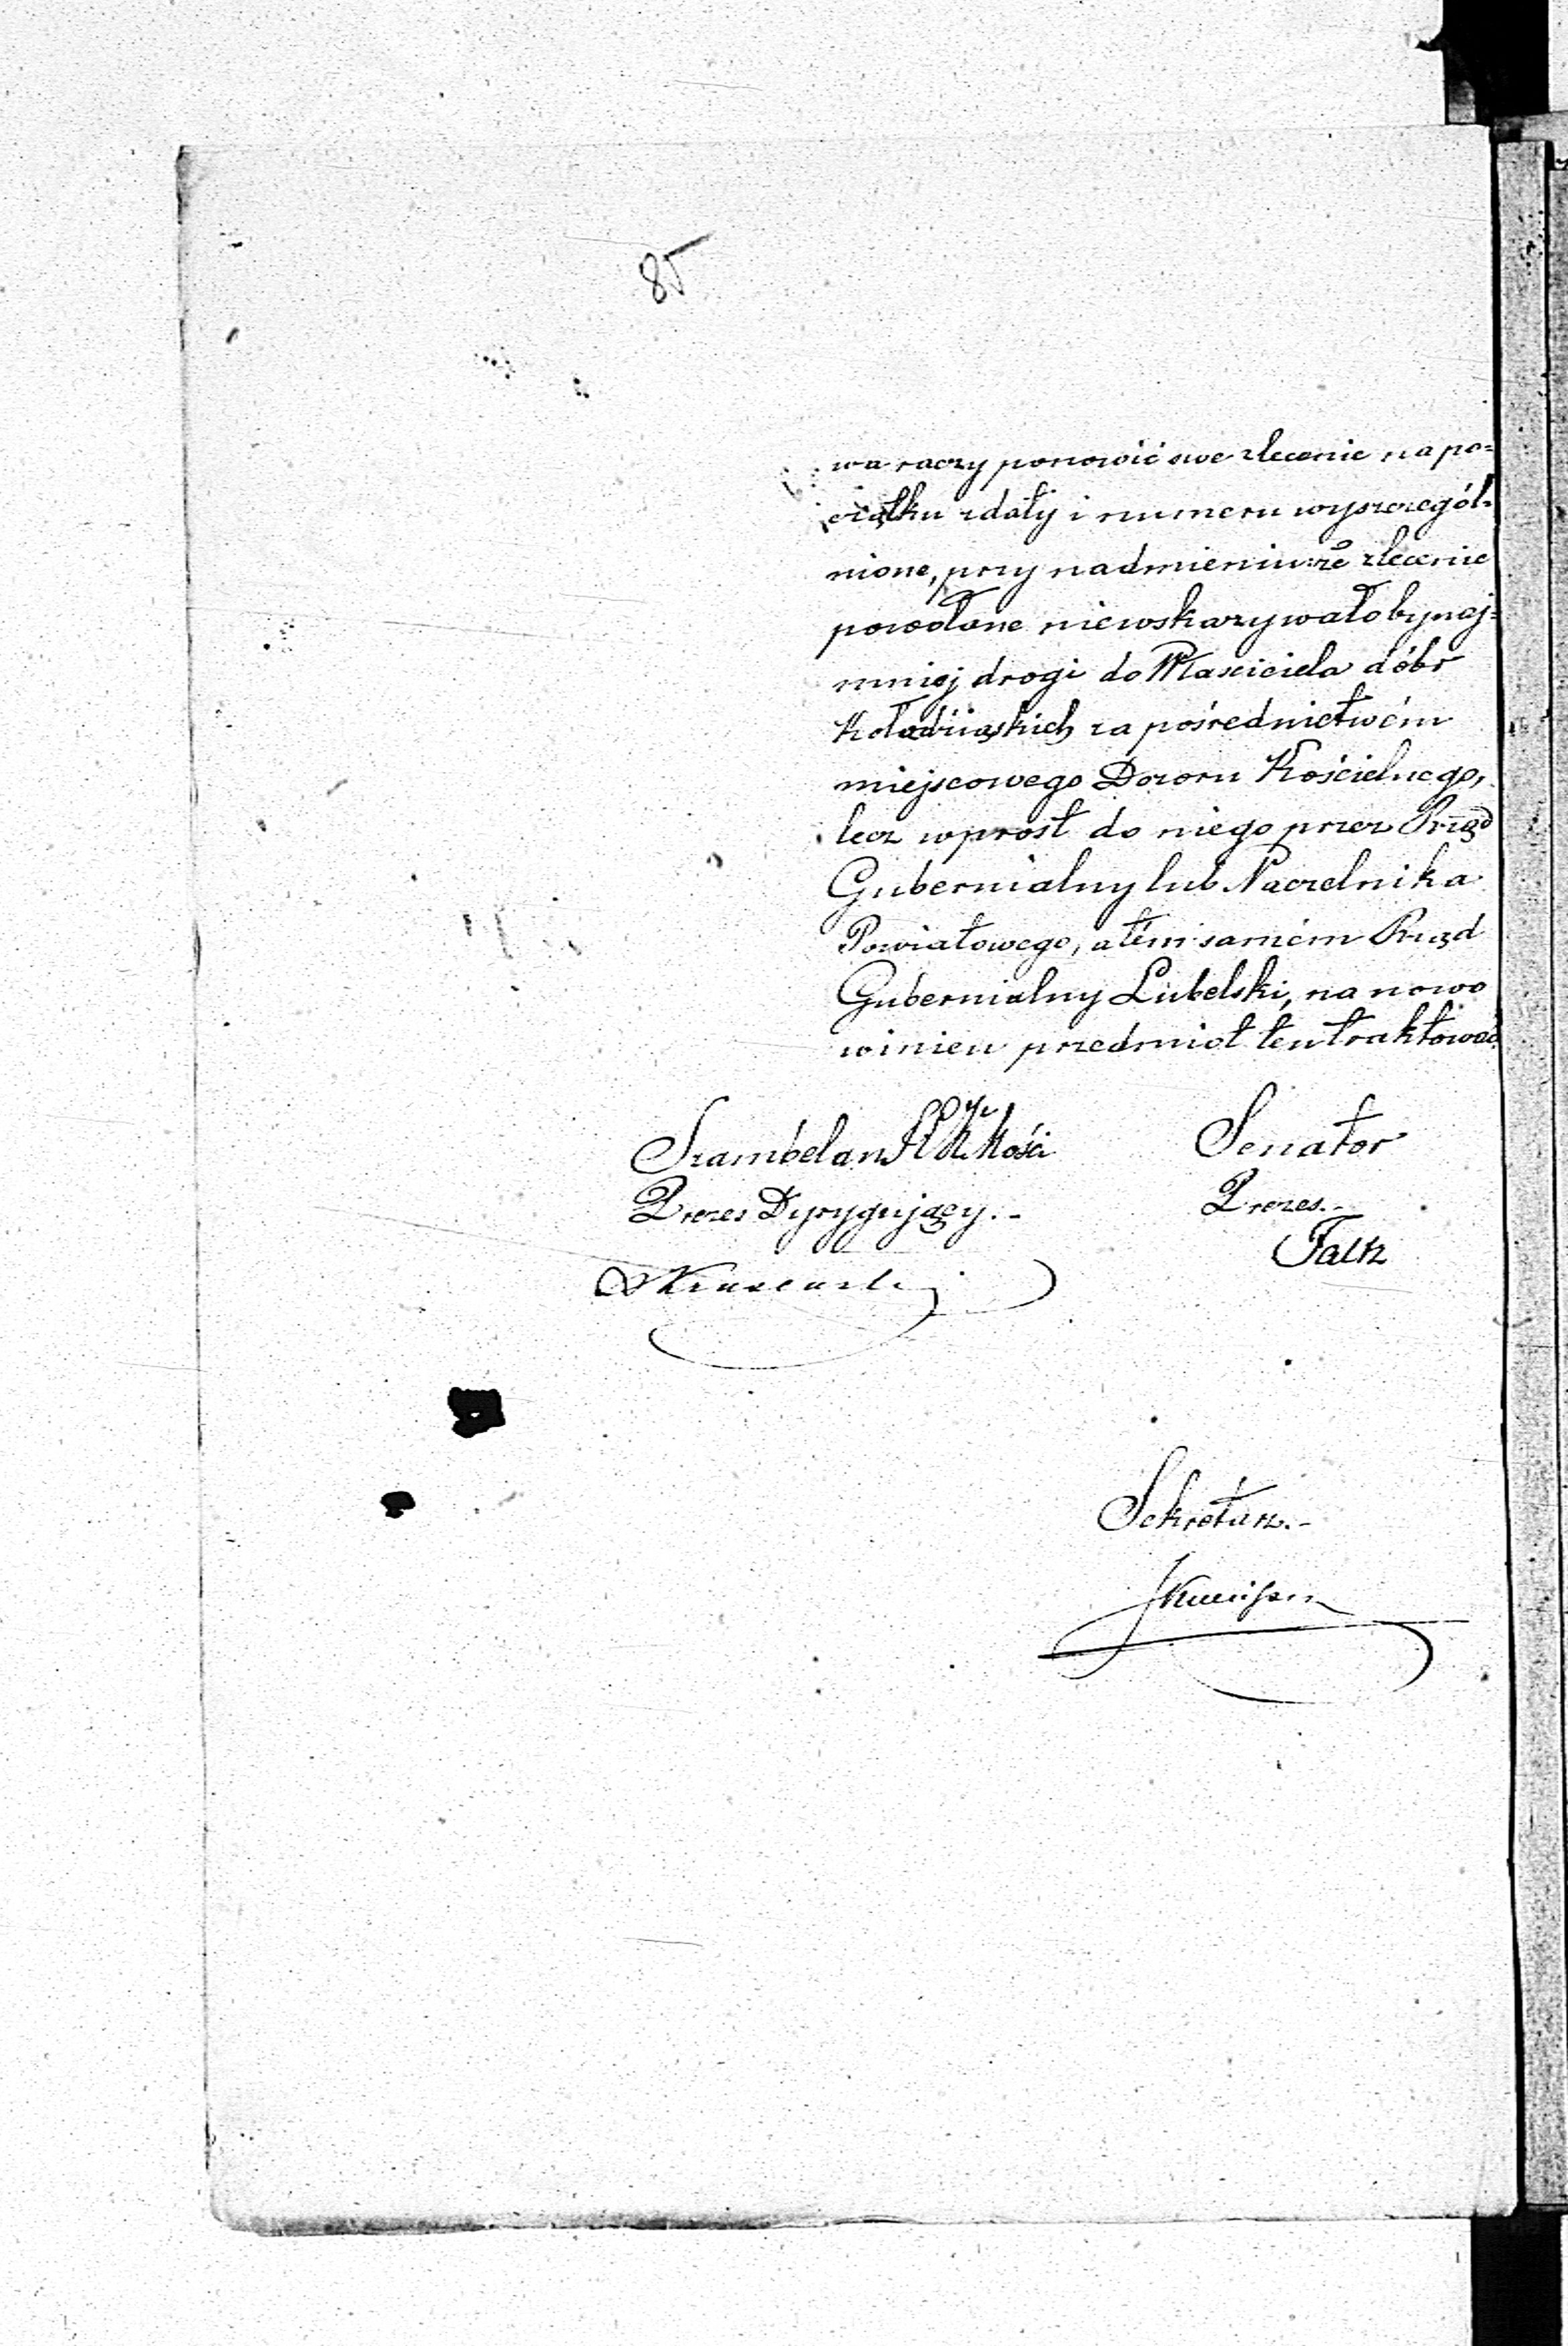 85
wa raczy ponowić swe zlecenie na po=
czątku z daty i numeru wyszczegól=
nione, przy nadmieniu: że zlecenie
powołane niewskazywało bynaj=
mniej drogi do Właściciela dóbr
za pośrednictwém
miejscowego Dozoru Kościelnego,
lecz wprost do niego przez Rząd
Gubernialny lub Naczelnika
Powiatowego, a tém samém Rząd
Gubernialny Lubelski, na nowo
winien przedmiot ten traktować.
Szambelan Mości
Senator
Prezes Dyrygujący.-
Prezes.-
Falz
Sekretarz.-